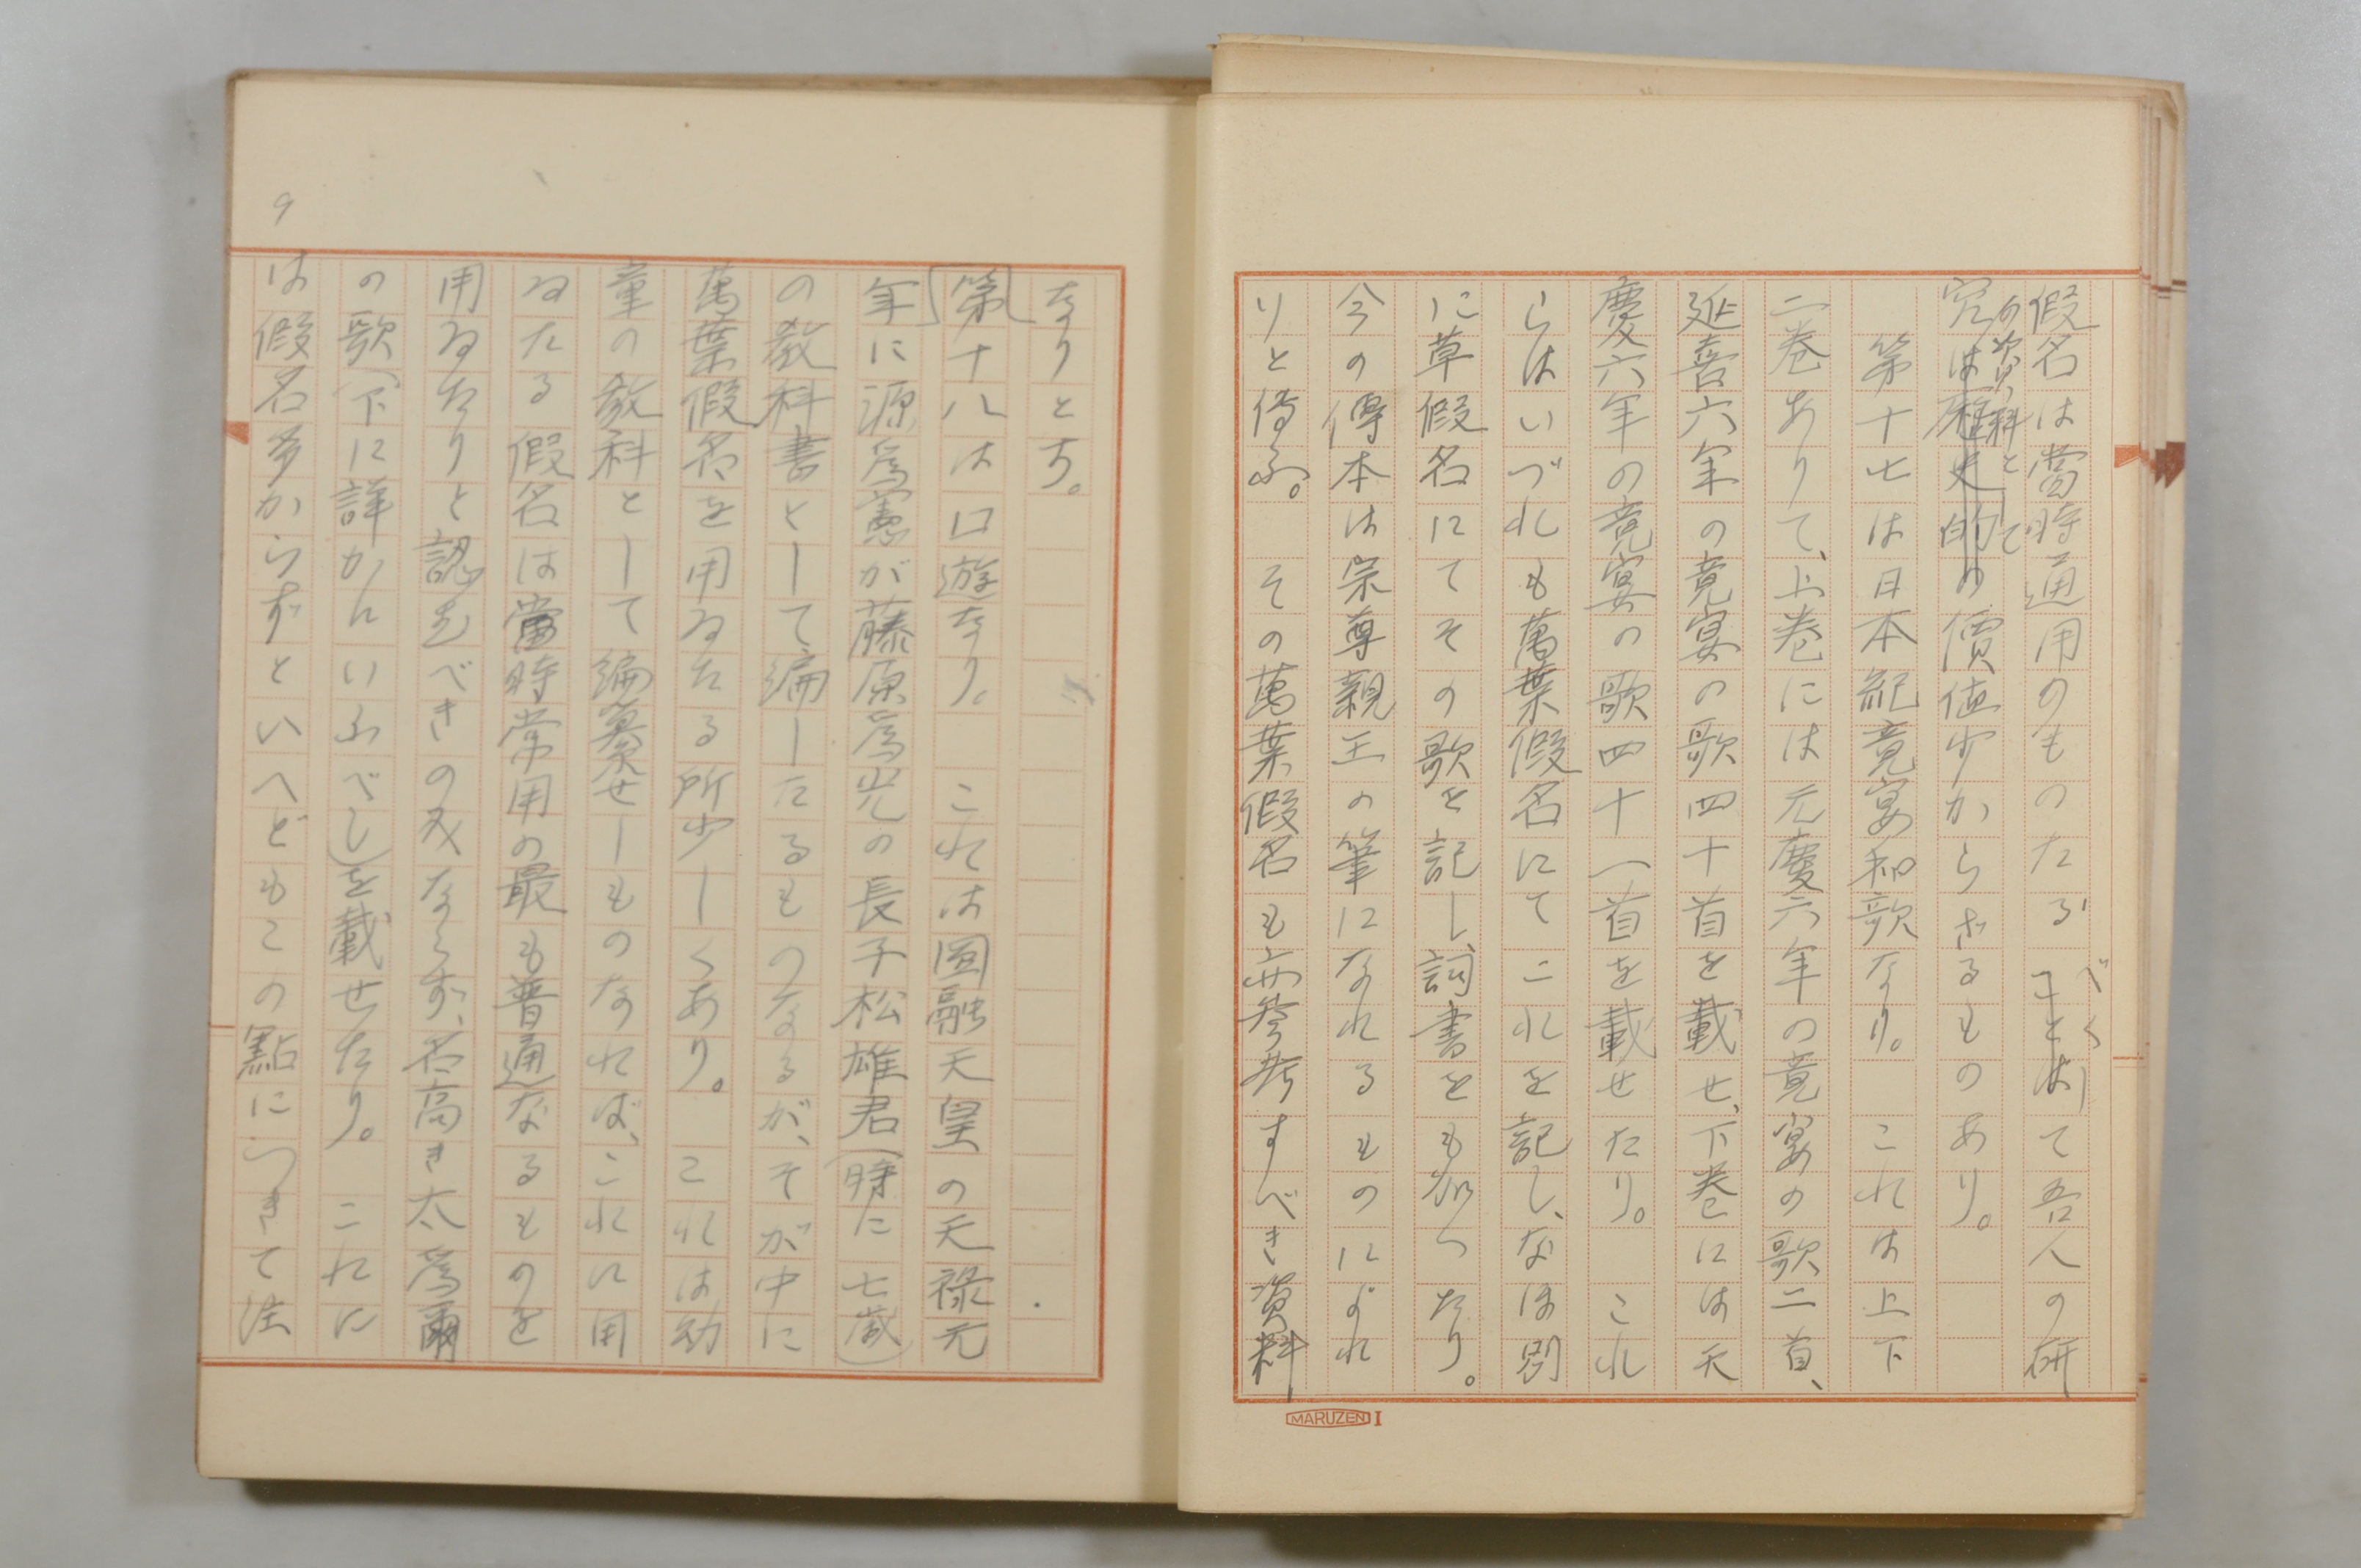 假名は當時通用のものたるべく して吾人の研
究の資料として の價値少からざるものあり。
第十七は日本紀竟宴和歌なり。 これは上下
二巻ありて、上巻には元慶六年の竟宴の歌二首、
延喜六年の竟宴の歌四十首を載せ、下巻には天
慶六年の竟宴の歌四十一首を載せたり。 これ
らはいづれも萬葉假名にてこれを記し、なほ別
に草假名にてその歌を記し、詞書をも加へたり。
今の傳本は宗尊親王の筆になれるものによれ
りと傳ふ。 その萬葉假名も亦参考すべき資料
MARUZEN I
なりとす。
第十八は口遊なり。 これは圓融天皇の天祿元
年に源爲憲が藤原爲光の長子松雄君(時に七歳)
の教科書として編したるものなるが、そが中に
萬葉假名を用ゐたる所少しくあり。 これは幼
童の教科として編纂せしものなれば、これに用
ゐたる假名は當時常用の最も普通なるものを
用ゐたりと認むべきのみならず、名高き太爲爾
の歌(下に詳かにいふべし)を載せたり。 これに
は假名多からずといへどもこの點につきて注
9